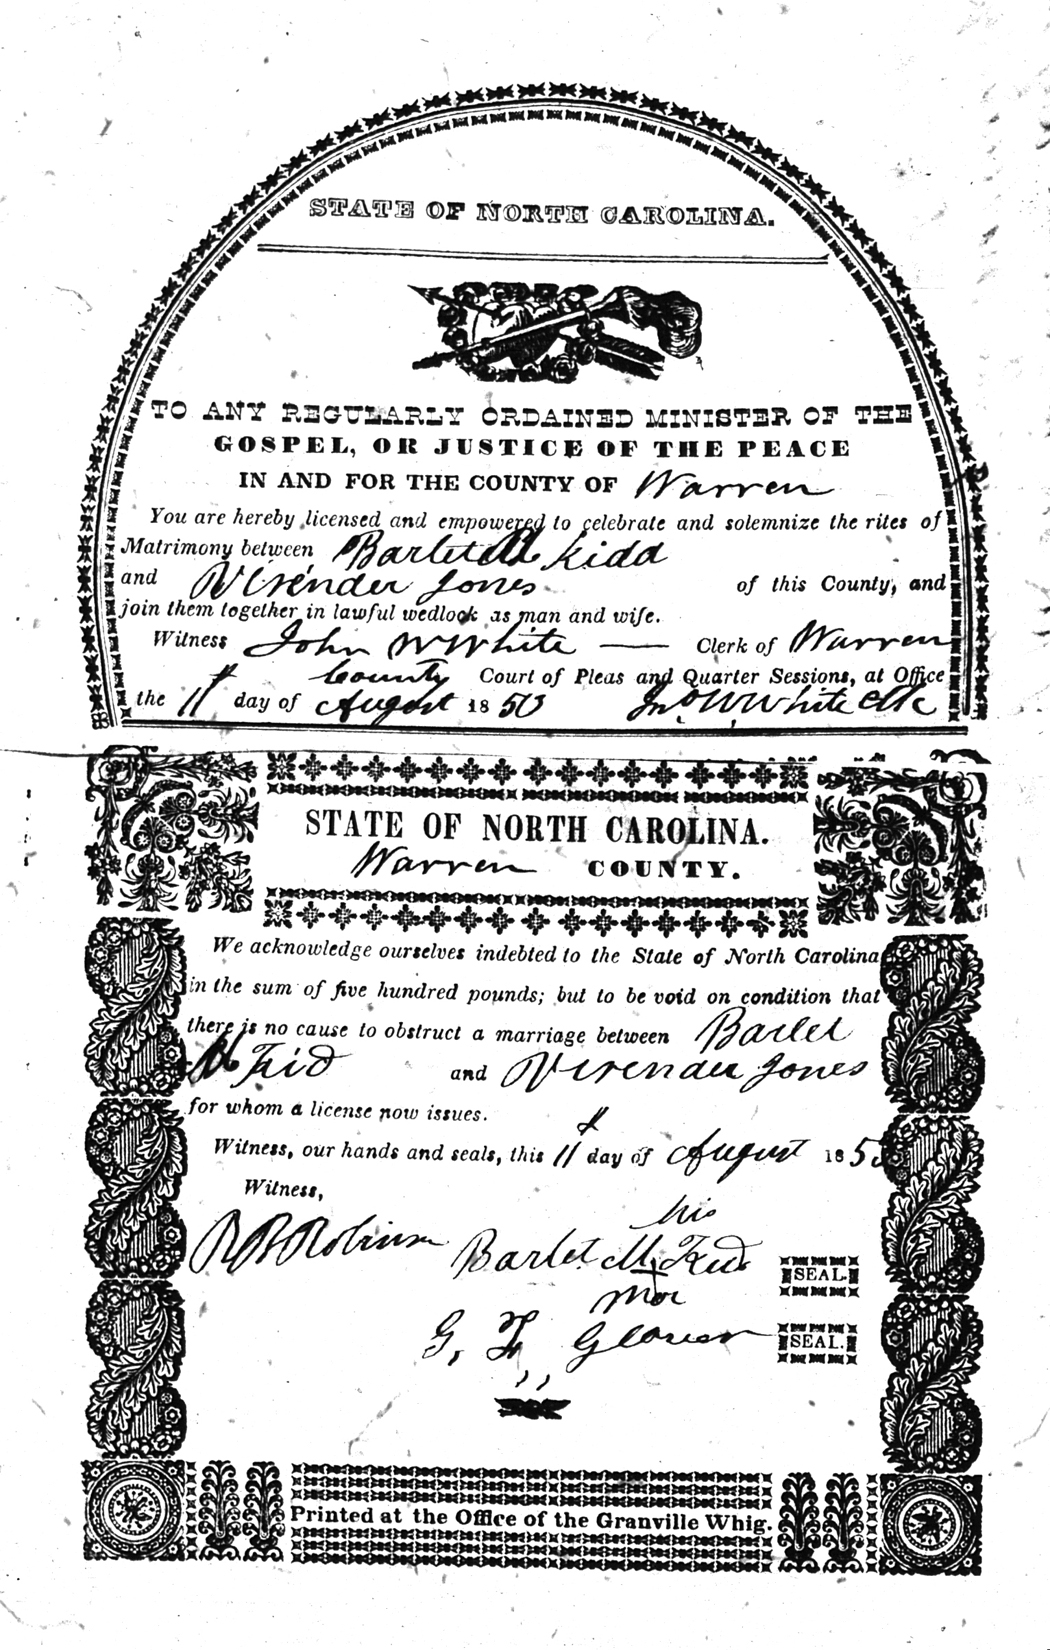 STATE OF NORTH CAROLINA.
TO ANY REGULARLY ORDAINED MINISTER OF THE
GOSPEL, OR JUSTICE OF THE PEACE
IN AND FOR THE COUNTY OF Warren
You are hereby licensed and empowered to celebrate and solemnize the rites of
Matrimony between Barlet M Kidd
and Virender Jones of this County, and
join them together in lawful wedlock as man and wife.
Witness John W White — Clerk of Warren
County Court of Pleas and Quarter Sessions, at Office
the 11 day of August 1850 Jno W. White Clk
STATE OF NORTH CAROLINA.
Warren COUNTY.
We acknowledge ourselves indebted to the State of North Carolina
in the sum of five hundred pounds; but to be void on condition that
there is no cause to obstruct a marriage between Barlet
M Kid and Virender Jones
for whom a license now issues.
Witness, our hands and seals, this 11 day of August 185
Witness,
his
R B Robinson Barlet M Kid SEAL.
G, Glover SEAL.
Printed at the Office of the Granville Whig.